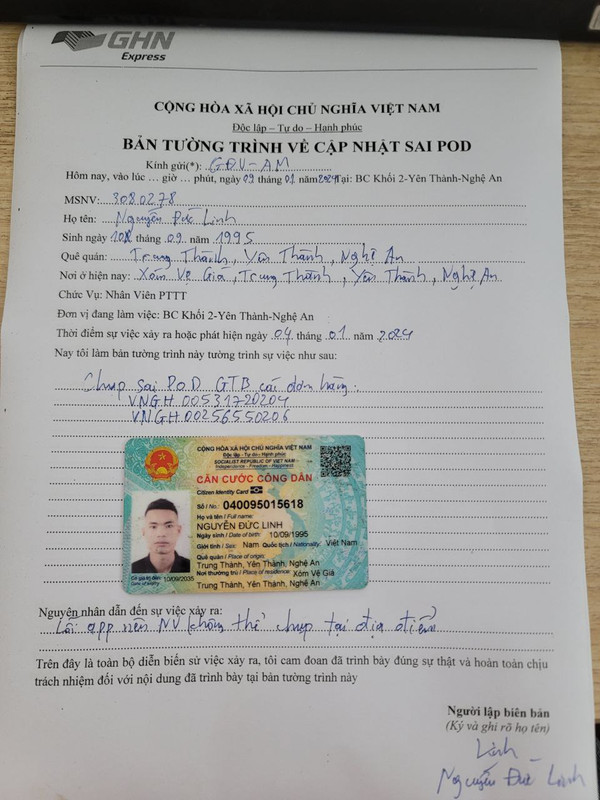 GHN
Express
CỘNG HÒA XÃ HỘI CHỦ NGHĨA VIỆT NAM
Độc lập – Tự do – Hạnh phúc
BẢN TƯỜNG TRÌNH VỀ CẬP NHẬT SAI POD
Kính gửi(*): GĐV-AM
Hôm nay, vào lúc … giờ … phút, ngày 09 tháng 01 năm 2024 Tại: BC Khối 2-Yên Thành-Nghệ An
MSNV: 3080278
Họ tên: Nguyễn Đức Linh
Sinh ngày 10 tháng 09 năm 1995
Quê quán: Trung Thành, Yên Thành, Nghệ An
Nơi ở hiện nay: Xóm Vê Giá, Trung Thành, Yên Thành, Nghệ An
Chức Vụ: Nhân Viên PTTT
Đơn vị đang làm việc: BC Khối 2-Yên Thành-Nghệ An
Thời điểm sự việc xảy ra hoặc phát hiện ngày 04 tháng 01 năm 2024
Nay tôi làm bản tường trình này tường trình sự việc như sau:
Chụp sai P.O.D GTB các đơn hàng.
VNGH 00531720204
VNGH 00256550206
CỘNG HÒA XÃ HỘI CHỦ NGHĨA VIỆT NAM
Độc lập - Tự do - Hạnh phúc
SOCIALIST REPUBLIC OF VIET NAM
Independence - Freedom - Happiness
CĂN CƯỚC CÔNG DÂN
Citizen Identity Card
Số / No.: 040095015618
Họ và tên / Full name:
NGUYỄN ĐỨC LINH
Ngày sinh / Date of birth: 10/09/1995
Giới tính / Sex: Nam Quốc tịch / Nationality: Việt Nam
Quê quán / Place of origin:
Trung Thành, Yên Thành, Nghệ An
Nơi thường trú / Place of residence: Xóm Vê Giá
Trung Thành, Yên Thành, Nghệ An
Có giá trị đến: 10/09/2035
Date of expiry
Nguyên nhân dẫn đến sự việc xảy ra:
Lỗi app nên NV không thể chụp tại địa điểm
Trên đây là toàn bộ diễn biến sử việc xảy ra, tôi cam đoan đã trình bày đúng sự thật và hoàn toàn chịu
trách nhiệm đối với nội dung đã trình bày tại bản tường trình này
Người lập biên bản
(Ký và ghi rõ họ tên)
Linh
Nguyễn Đức Linh